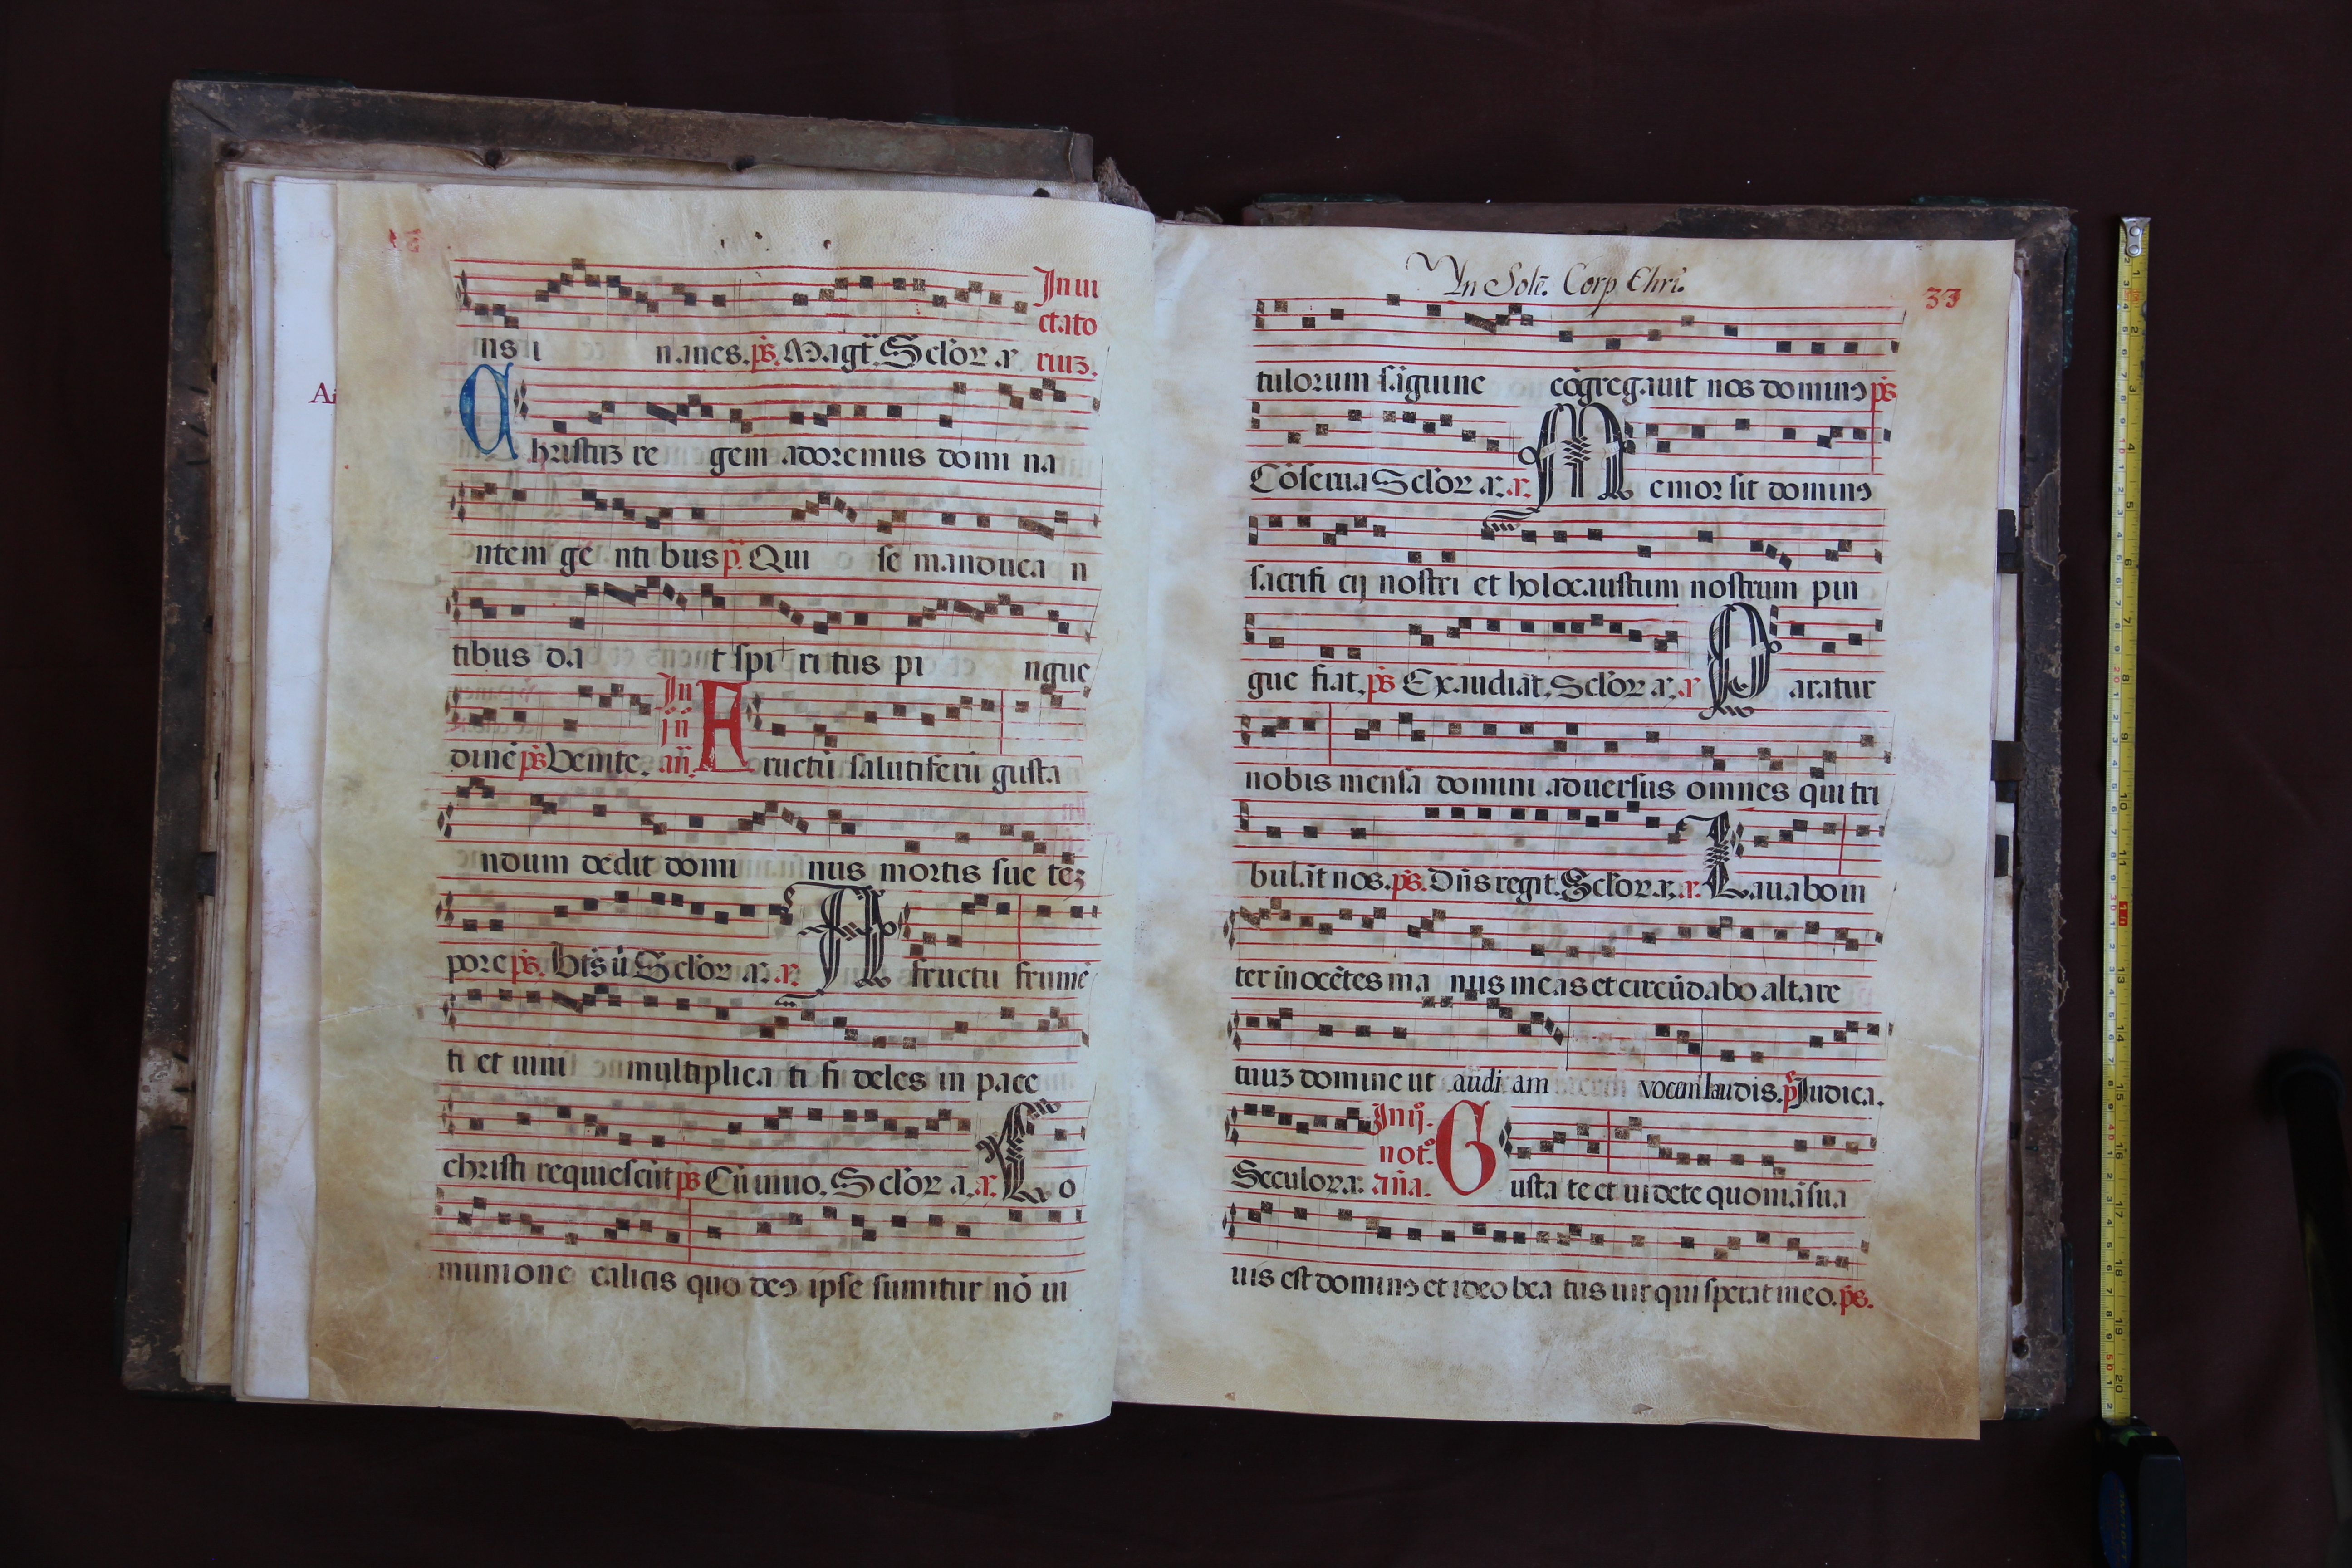 Inui
ctato
riuz.
ns i nanes. ps. Magt. Seclor a
Christuz re gem adoremus domi na
ntem gē nti bus p. Qui se manduca n
tibus da t spi ri tus pi ngue
In
jn
dinē ps Venite. añ. Fructū salutiferū gusta
ndum dedit domi nus mortis sue tēz
pore ps. Bts ū Seclor a. a. A fructu frumē
ti et uini multiplica ti fi deles in pace
christi requiescūt ps Cū inuo. Seclor a. a. Co
munione calicis quo deꝰ ipse sumitur nō ui
In Solē. Corp. Chri.
33
tulorum sāguine cōgregauit nos dominꝰ ps
Cōserua Seclor a. a. Memor sit dominꝰ
sacrifi cij nostri et holocaustum nostrum pin
gue fiat. ps Exaudiat. Seclor a. a Paratur
nobis mensa domini aduersus omnes qui tri
bulāt nos. ps. Dñs regit. Seclor a. a. Lauabo in
ter inocētes ma nus meas et circūdabo altare
tuuz domine ut audi am vocem laudis. p Iudica.
Seculor a. In ij. not. aña. Gusta te et uidete quoniā sua
uis est dominꝰ et ideo bea tus uir qui sperat in eo. ps.